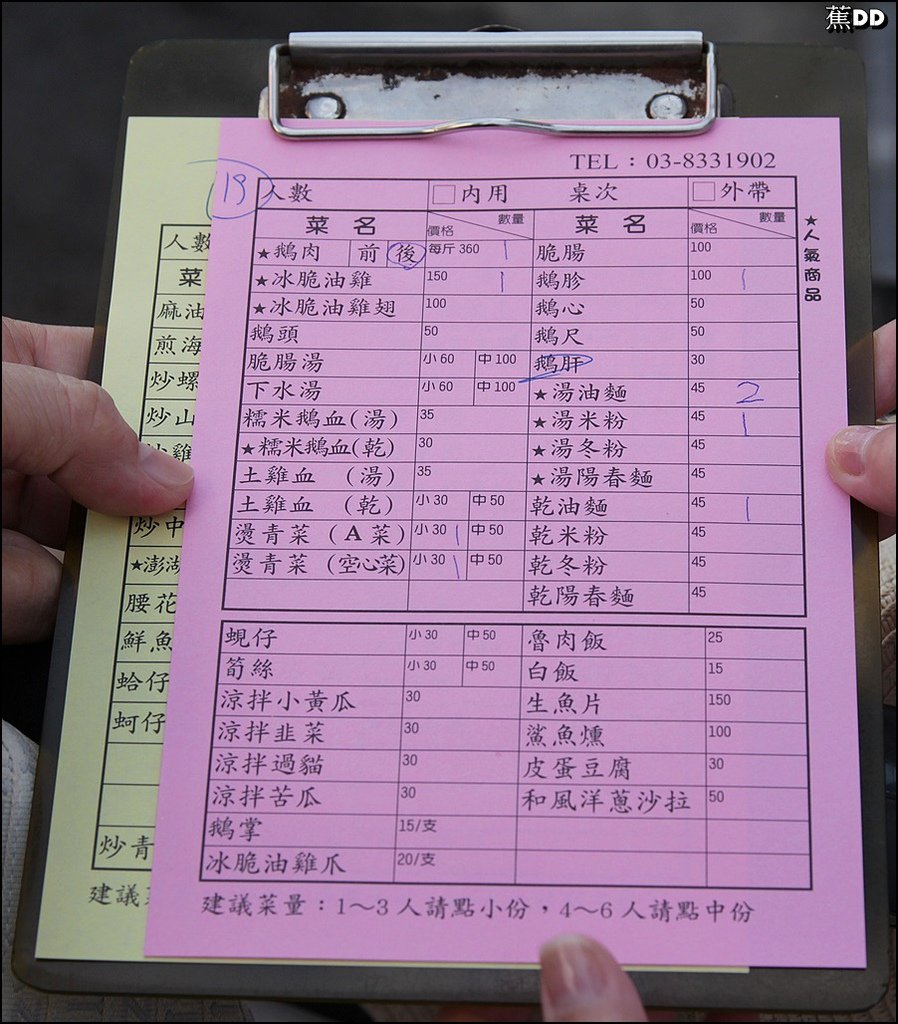 蕉DD
TEL：03-8331902
19
人數 □內用 桌次 □外帶
菜名 價格 數量 菜名 價格 數量
★鵝肉 前 後 每斤 360 1 脆腸 100
★冰脆油雞 150 1 鵝胗 100 1
★冰脆油雞翅 100 鵝心 50
鵝頭 50 鵝尺 50
脆腸湯 小 60 中 100 鵝肝 30
下水湯 小 60 中 100 ★湯油麵 45 2
糯米鵝血(湯) 35 ★湯米粉 45 1
★糯米鵝血(乾) 30 ★湯冬粉 45
土雞血 (湯) 35 ★湯陽春麵 45
土雞血 (乾) 小 30 中 50 乾油麵 45 1
燙青菜 (A菜) 小 30 1 中 50 乾米粉 45
燙青菜 (空心菜) 小 30 1 中 50 乾冬粉 45
乾陽春麵 45
★人氣商品
蜆仔 小 30 中 50 魯肉飯 25
筍絲 小 30 中 50 白飯 15
涼拌小黃瓜 30 生魚片 150
涼拌韭菜 30 鯊魚燻 100
涼拌過貓 30 皮蛋豆腐 30
涼拌苦瓜 30 和風洋蔥沙拉 50
鵝掌 15/支
冰脆油雞爪 20/支
建議菜量：1～3 人請點小份，4～6 人請點中份
人數
菜
麻油
煎海
炒螺
炒山
炒中
★澎湖
腰花
鮮魚
蛤仔
蚵仔
炒青
建議